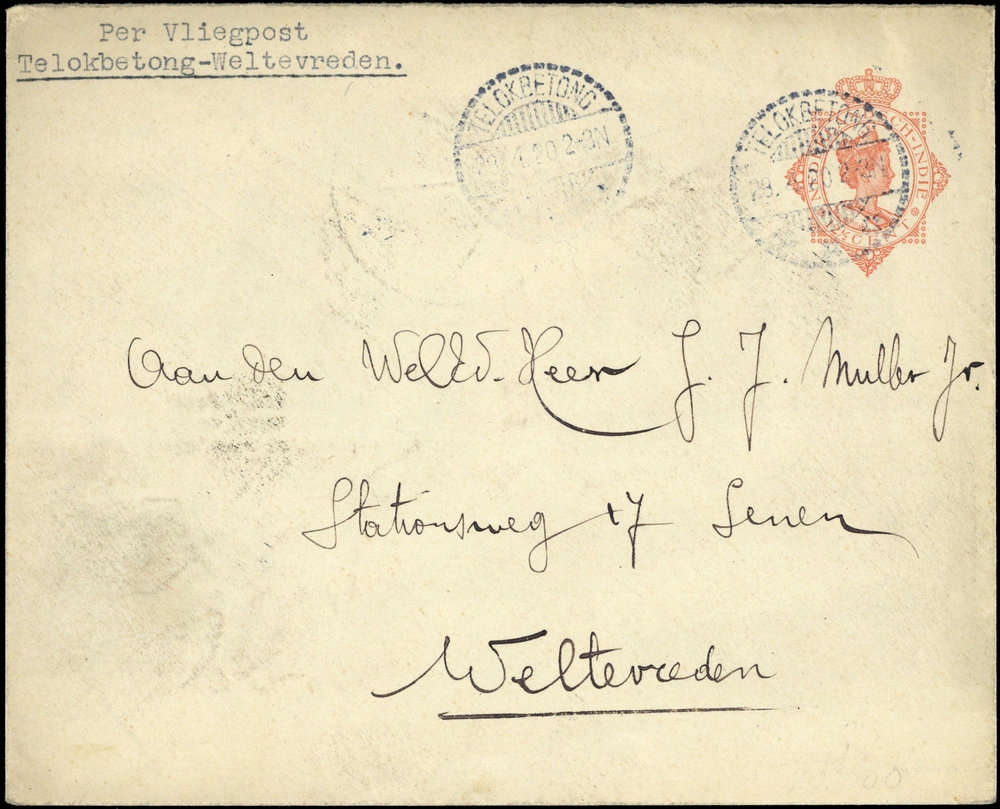 Per Vliegpost
Telokbetong-Weltevreden.
TELOKBETONG
.4.20 2-3N
TELOKBETONG
28.
CENT
Aan den WelEd. Heer J. J. Muller Jr.
Stationsweg 17 Senen
Weltevreden